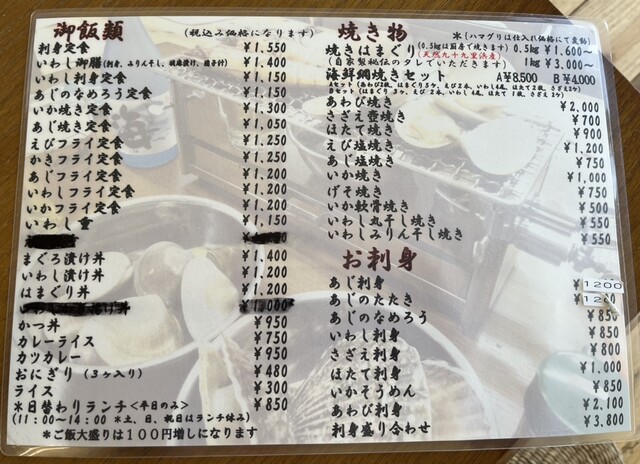 御飯類 (税込み価格になります)
刺身定食 ¥1,550
いわし御膳(刺身、みりん干し、胡麻漬け、団子汁) ¥1,400
いわし刺身定食 ¥1,150
あじのなめろう定食 ¥1,150
いか焼き定食 ¥1,300
あじ焼き定食 ¥1,050
えびフライ定食 ¥1,250
かきフライ定食 ¥1,250
あじフライ定食 ¥1,200
いわしフライ定食 ¥1,200
いかフライ定食 ¥1,200
いわし重 ¥1,150
まぐろ漬け丼 ¥1,400
いわし漬け丼 ¥1,200
はまぐり丼 ¥1,200
かつ丼 ¥950
カレーライス ¥750
カツカレー ¥950
おにぎり (3ヶ入り) ¥480
ライス ¥300
*日替わりランチ<平日のみ> ¥850
(11:00〜14:00 *土、日、祝日はランチ休み)
*ご飯大盛りは100円増しになります
焼き物 *(ハマグリは仕入れ価格にて変動)
焼きはまぐり(0.5kgは厨房で焼きます) 0.5kg ¥1,600〜
(天然九十九里浜産)
(自家製秘伝のタレでいただきます) 1kg ¥3,000〜
海鮮網焼きセット A¥8,500 B¥4,000
あわび焼き ¥2,000
さざえ壺焼き ¥700
ほたて焼き ¥900
えび塩焼き ¥1,200
あじ塩焼き ¥750
いか焼き ¥1,000
げそ焼き ¥750
いか軟骨焼き ¥500
いわし丸干し焼き ¥550
いわしみりん干し焼き ¥550
お刺身
あじ刺身 ¥1200
あじのたたき ¥1200
あじのなめろう ¥850
いわし刺身 ¥850
さざえ刺身 ¥800
ほたて刺身 ¥1,000
いかそうめん ¥850
あわび刺身 ¥2,100
刺身盛り合わせ ¥3,800